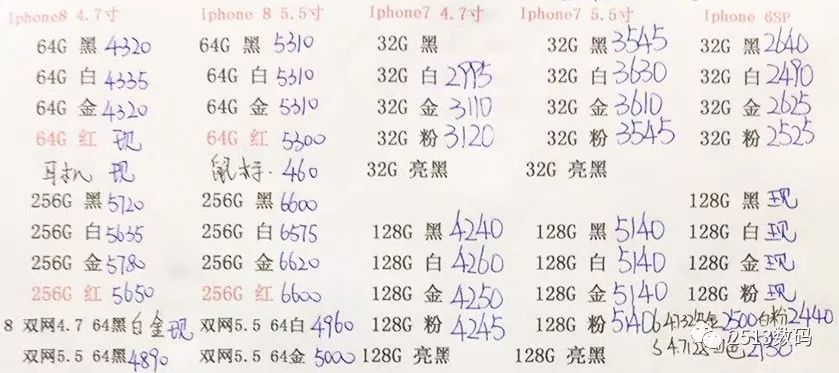 Iphone8 4.7寸 Iphone 8 5.5寸 Iphone7 4.7寸 Iphone7 5.5寸 Iphone 6SP
64G 黑 4320 64G 黑 5310 32G 黑 32G 黑 3545 32G 黑 2640
64G 白 4335 64G 白 5310 32G 白 2995 32G 白 3630 32G 白 2490
64G 金 4320 64G 金 5310 32G 金 3110 32G 金 3610 32G 金 2625
64G 红 现 64G 红 5300 32G 粉 3120 32G 粉 3545 32G 粉 2525
耳机 现 鼠标 460 32G 亮黑 32G 亮黑
256G 黑 5720 256G 黑 6600 128G 黑 现
256G 白 5635 256G 白 6575 128G 黑 4240 128G 黑 5140 128G 白 现
256G 金 5780 256G 金 6620 128G 白 4260 128G 白 5140 128G 金 现
256G 红 5650 256G 红 6600 128G 金 4250 128G 金 5140 128G 粉 现
8 双网4.7 64黑白金现 双网5.5 64白 4960 128G 粉 4245 128G 粉 5140 6 4.7 32 2500 白粉 2440
双网5.5 64黑 4890 双网5.5 64金 5000 128G 亮黑 128G 亮黑 2513数码